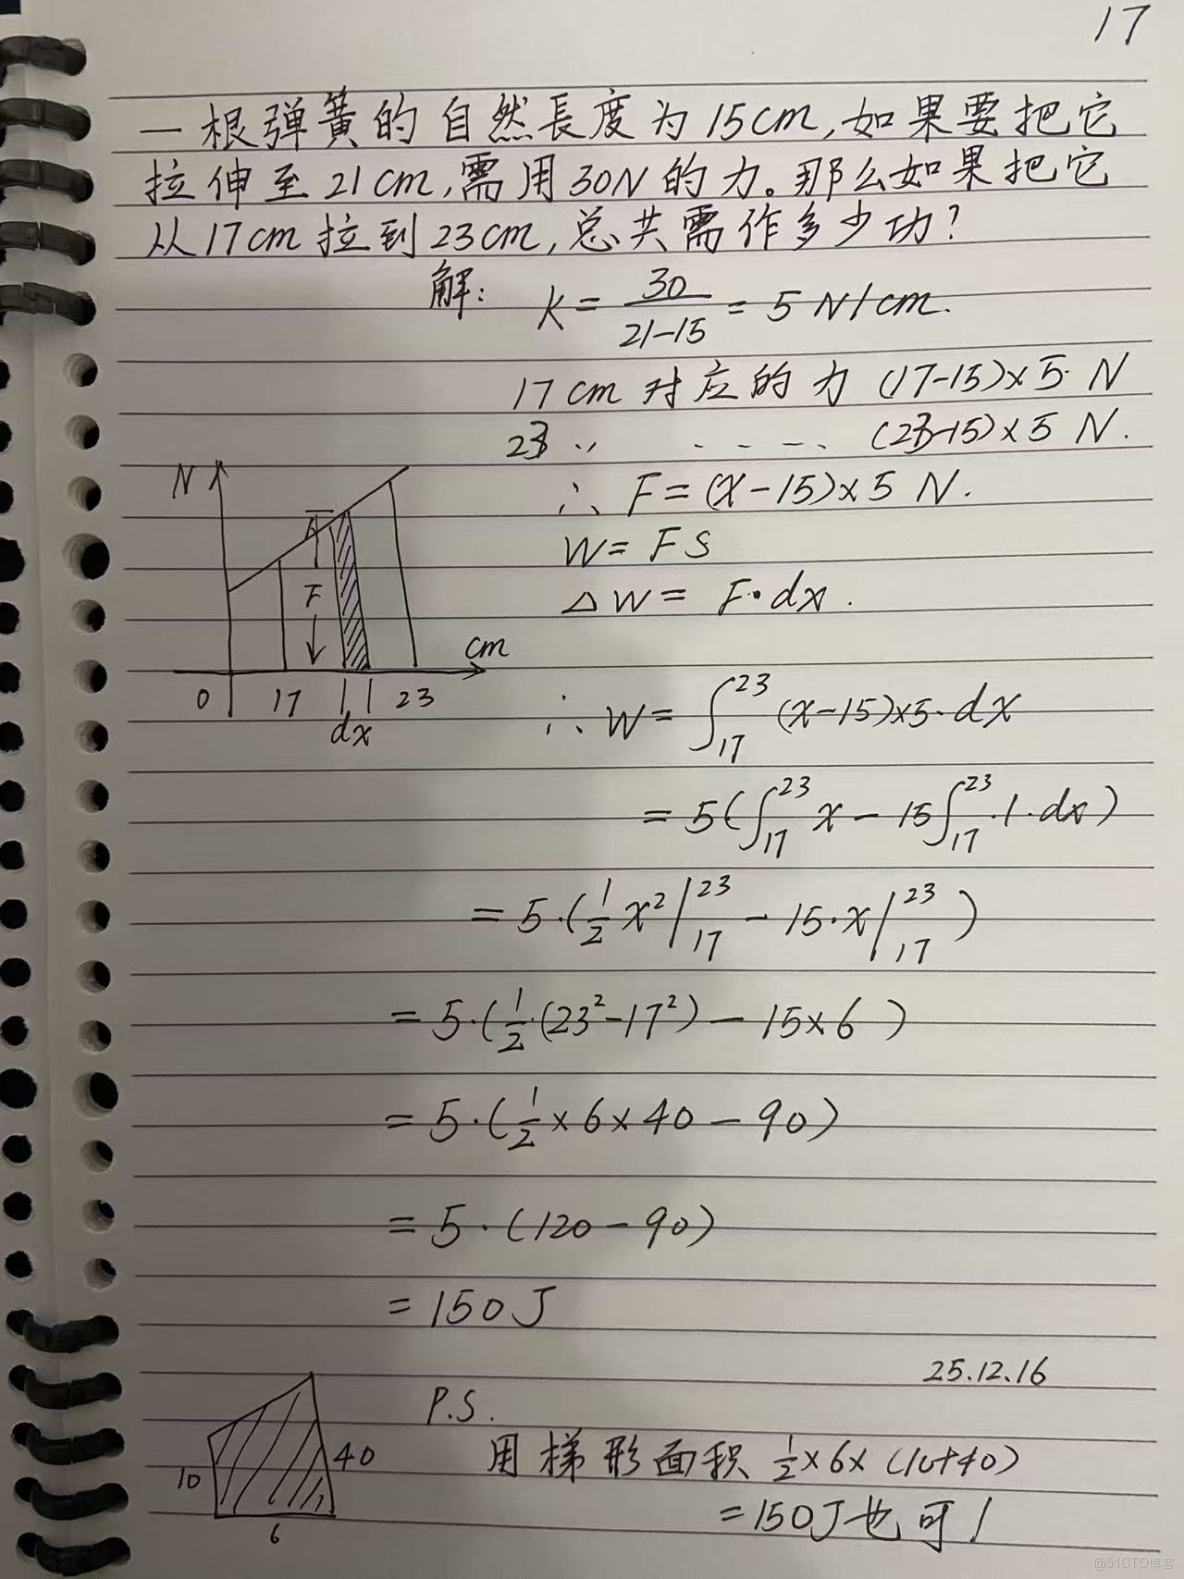 17
一根弹簧的自然長度为15cm,如果要把它
拉伸至21cm,需用30N的力。那么如果把它
从17cm拉到23cm,总共需作多少功?
解: K = 30/(21-15) = 5 N/cm.
17cm 对应的力 (17-15)×5 N
23 〃 ..... (23-15)×5 N.
∴ F = (x-15)×5 N.
W = FS
ΔW = F·dx.
N
F
cm
0 17 23
dx
∴ W = ∫₁₇²³ (x-15)×5·dx
= 5(∫₁₇²³ x - 15∫₁₇²³·1·dx)
= 5·(½x²|₁₇²³ - 15·x|₁₇²³)
= 5·(½·(23²-17²) - 15×6)
= 5·(½×6×40-90)
= 5·(120-90)
= 150J
25.12.16
P.S.
用梯形面积 ½×6×(10+40)
=150J也可!
10 40
6
@51CTO博客